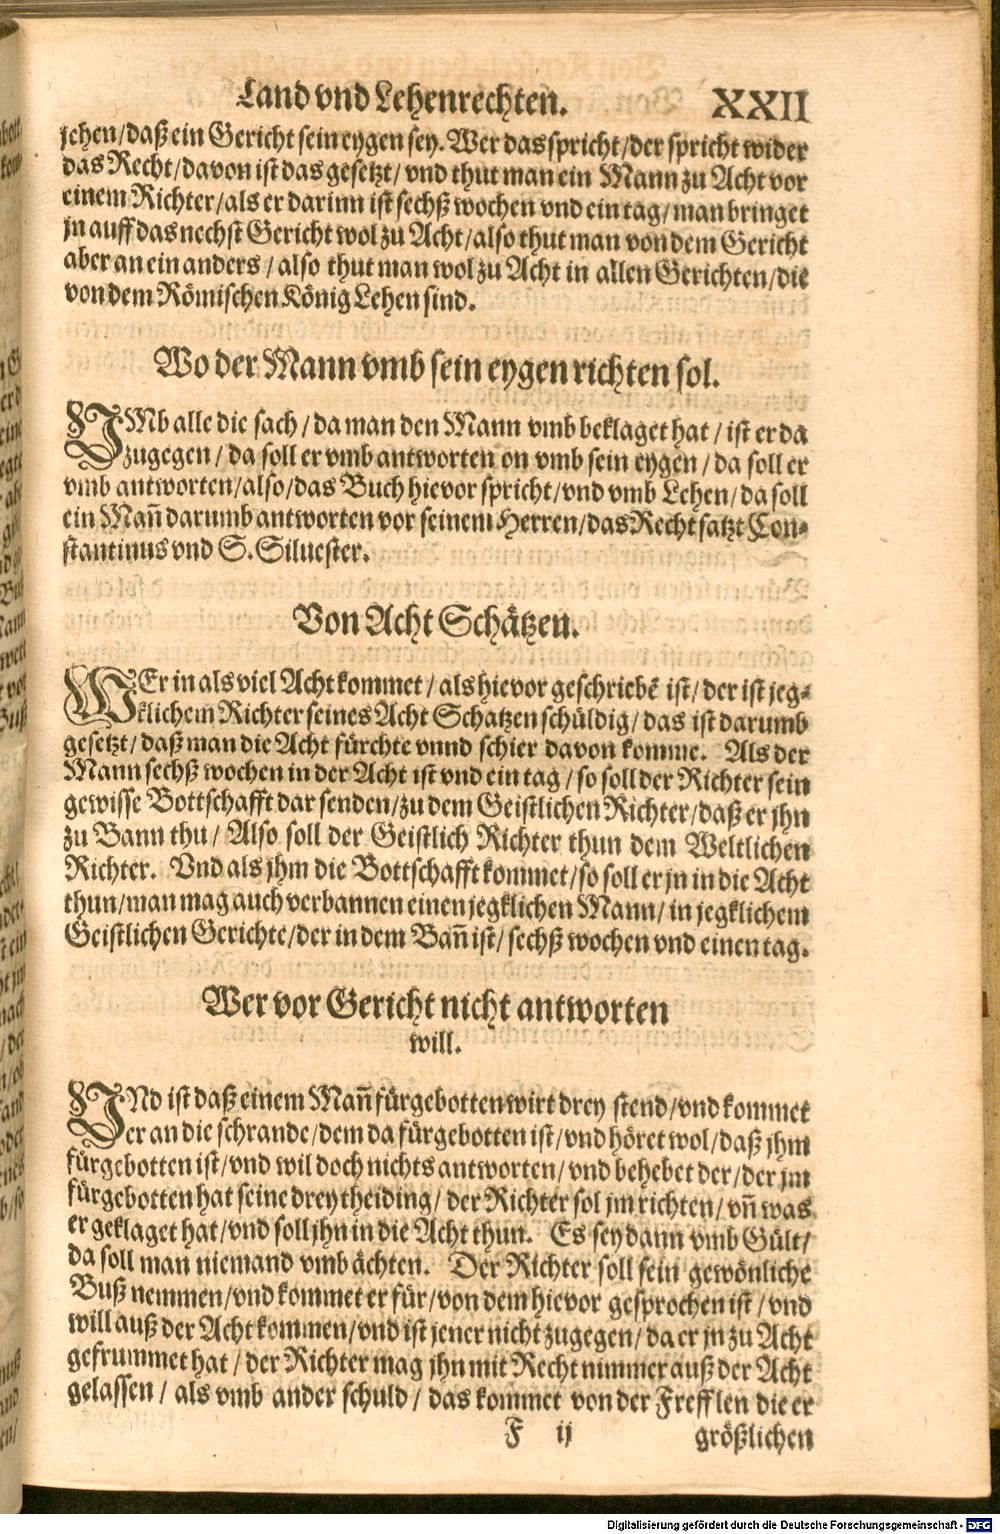 Land vnd Lehenrechten. XXII
jehen/daß ein Gericht sein eygen sey. Wer das spricht/der spricht wider
das Recht/davon ist das gesetzt/ vnd thut man ein Mann zu Acht vor
einem Richter/als er darinn ist sechß wochen vnd ein tag/man bringet
jn auff das nechst Gericht wol zu Acht/also thut man von dem Gericht
aber an ein anders / also thut man wol zu Acht in allen Gerichten/die
von dem Römischen König Lehen sind.
Wo der Mann vmb sein eygen richten sol.
VMb alle die sach / da man den Mann vmb beklaget hat / ist er da
zugegen / da soll er vmb antworten on vmb sein eygen / da soll er
vmb antworten/also/das Buch hievor spricht/vnd vmb Lehen/da soll
ein Mañ darumb antworten vor seinem Herren/das Recht satzt Con-
stantinus vnd S. Siluester.
Von Acht Schätzen.
WEr in als viel Acht kommet / als hievor geschribẽ ist/ der ist jeg-
klichem Richter seines Acht Schatzen schüldig/ das ist darumb
gesetzt/ daß man die Acht fürchte vnnd schier davon komme. Als der
Mann sechß wochen in der Acht ist vnd ein tag / so soll der Richter sein
gewisse Bottschafft dar senden/zu dem Geistlichen Richter/daß er jhn
zu Bann thu/ Also soll der Geistlich Richter thun dem Weltlichen
Richter. Vnd als jhm die Bottschafft kommet/so soll er jn in die Acht
thun/man mag auch verbannen einen jegklichen Mann/ in jegklichem
Geistlichen Gerichte/der in dem Bañ ist/ sechß wochen vnd einen tag.
Wer vor Gericht nicht antworten
will.
VNd ist daß einem Mañ fürgebotten wirt drey stend/vnd kommet
er an die schrande/dem da fürgebotten ist/vnd höret wol/daß jhm
fürgebotten ist/vnd wil doch nichts antworten/ vnd behebet der/der jm
fürgebotten hat seine drey theiding/ der Richter sol jm richten/ vñ was
er geklaget hat/vnd soll jhn in die Acht thun. Es sey dann vmb Gült/
da soll man niemand vmb ächten. Der Richter soll sein gewönliche
Buß nemmen/vnd kommet er für/von dem hievor gesprochen ist / vnd
will auß der Acht kommen/vnd ist jener nicht zugegen/ da er jn zu Acht
gefrummet hat / der Richter mag jhn mit Recht nimmer auß der Acht
gelassen / als vmb ander schuld / das kommet von der Frefflen die er
F ij größlichen
Digitalisierung gefördert durch die Deutsche Forschungsgemeinschaft - DFG